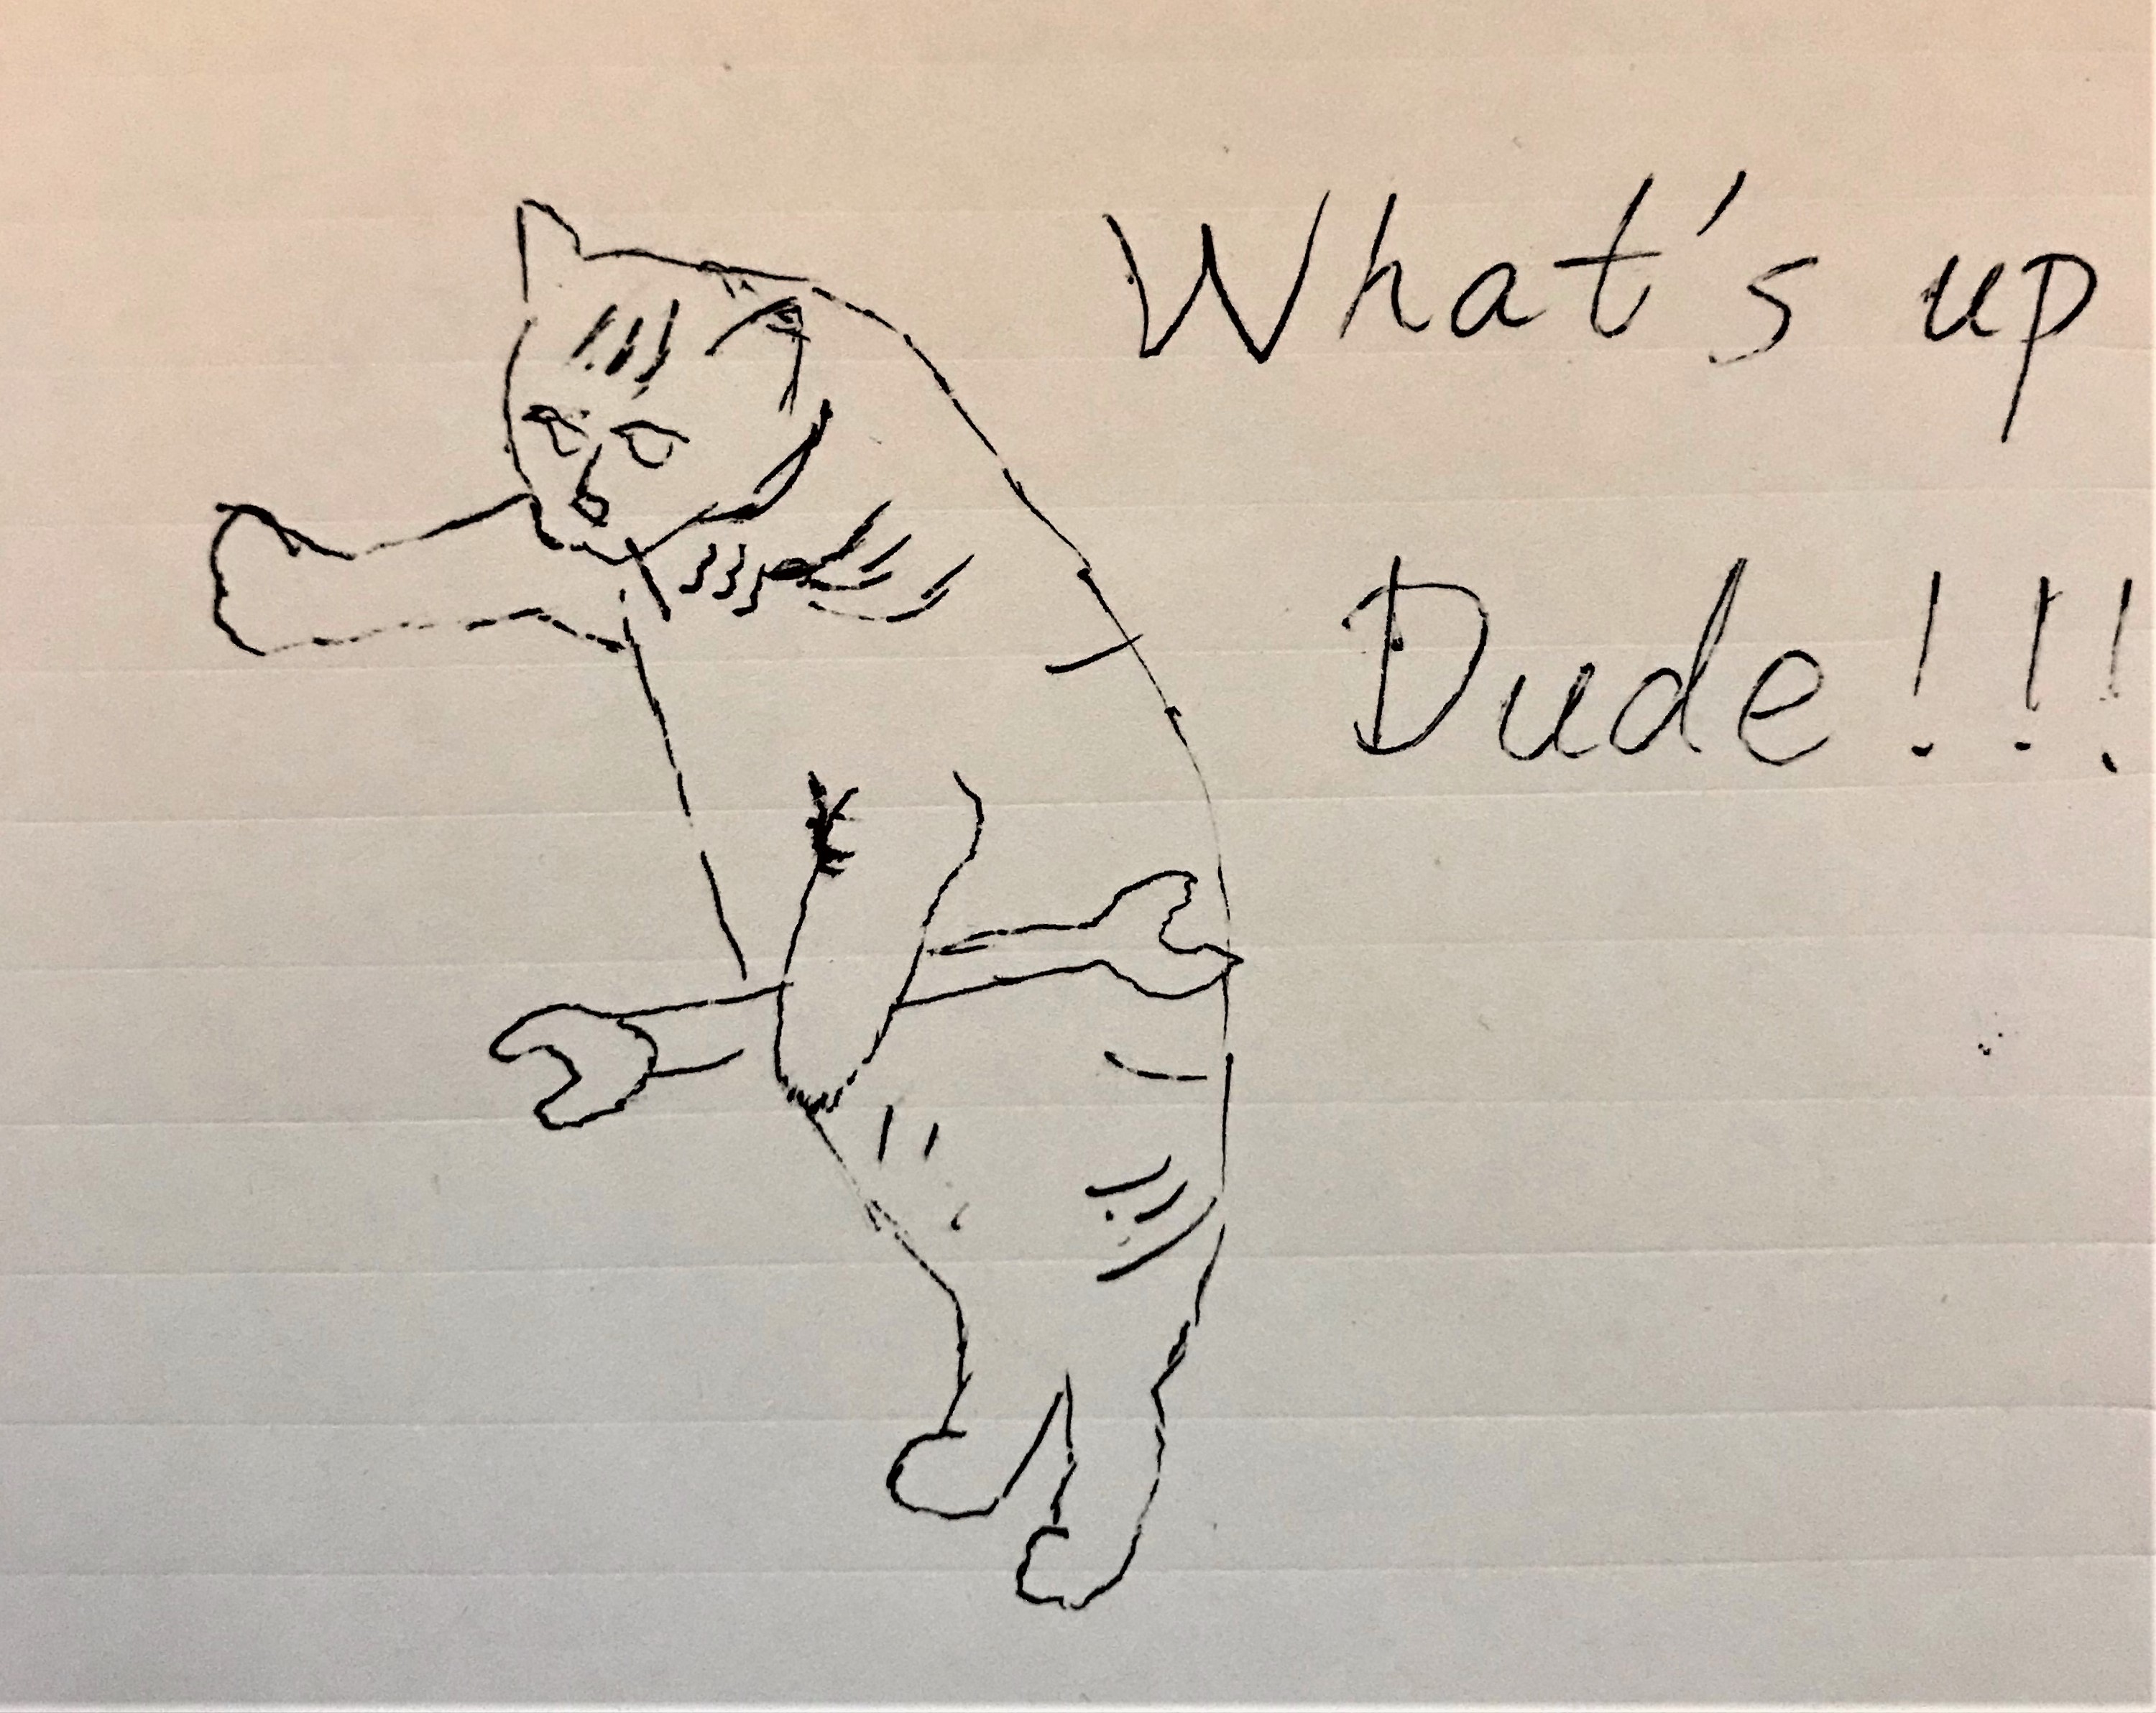 What's up
Dude!!!